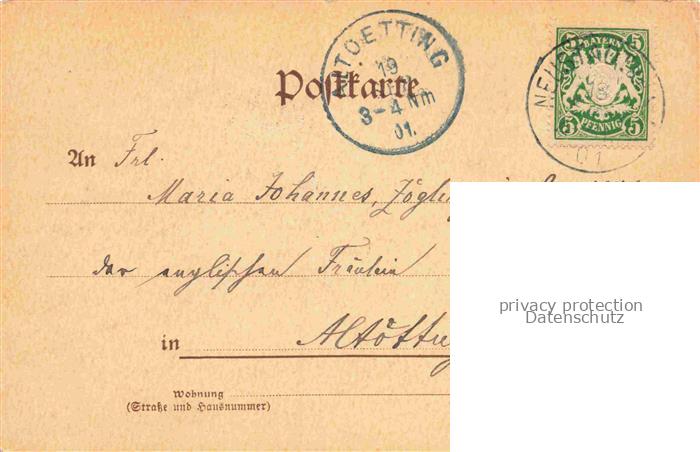 ALTOETTING
19
3-4 Nm
01.
5 BAYERN 5
5 PFENNIG 5
01
Postkarte
An Frl.
Maria Johannes,
der englischen Fräulein
in
Wohnung
(Straße und Hausnummer)
privacy protection
Datenschutz